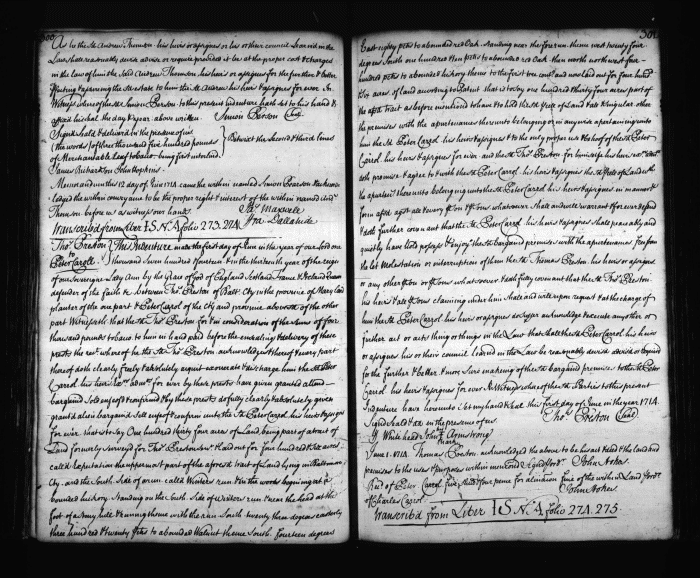 300
As to the sd. Andrew Thomson his heirs or assignes or his or their council Learned in the
Law shall reasonably devise advise or require provided it be at the proper cost & charges
in the law of him the said Andrew Thomson his heirs or assignes for the further & better
setling & assuring the to him the sd. Andrew his heirs & assignes for ever In
Witness whereof the sd. Simon Person to this present Indenture hath set to his hand &
affixt his seal the day & year above written Simon Person Seal
Signed Seald & delivered in the presence of us
(the words) of three thousand five hundred pounds } Betwixt the second & third Lines
of Merchantable Leaf tobacco being first interlined
James Richardson John Hopkins
Memorandum this 12 day of June 1714 came the within named Simon Pearson & acknow
ledged the within conveyance to be the proper right & interest of the within named
Thomson before us as witness our hands Jas. Maxwell
Transcribed from Liber I S N. A folio 273. 274
Thos. Preston } This Indenture made the first day of June in the year of our Lord one
to
Peter Carroll } thousand seven hundred fourteen & in the thirteenth year of the reign
of our Sovereign Lady Ann by the Grace of God of England Scotland France & Ireland Queen
defender of the faith &c. between Thos. Preston of Balto. Cty in the province of Mary land
planter of the one part & Peter Carrol of the Cty and province aboves'd of the other
part Witnesseth that the sd. Thos. Preston for & in consideration of the sum of four
thousand pounds tobacco to him in hand paid before the ensealing & delivery of these
presents the rect. whereof he the sd. Thos. Preston acknowledgeth & thereof & every part
thereof doth clearly freely & absolutely acquit exonerate & discharge him the sd. Peter
Carrol his heirs & admrs. for ever by these presents have given granted aliened
bargained sold enfeoft & confirmed & by these presents do fully clearly & absolutely given
grant aliein bargain sell enfeoft & confirm unto the sd. Peter Carrol his heirs & assignes
for ever that is to say One hundred thirty four acres of Land being part of a tract of
Land formerly surveyed for Thos. Preston Senr. & laid out for four hundred & six acres
called Expectation the uppermost part of the aforesd. tract of Land lying in Baltimore
Cty. and the South side of a run called Winters run & in the woods beginning at a
bounded hickory standing on the South Side of Winters run & near the head at the
foot of a stony hill & running thence with the run South twenty three degrees easterly
three hundred & twenty Perches to a bounded Walnut thence South fourteen degrees
301
East eighty perches to a bounded red Oak standing near the four run thence west twenty four
degrees South one hundred & ten perches to a bounded red Oak then north north west four
hundred perches to a bounded hickory thence to the first tree containing and now laid out for four hundred
& six acres of land according to Patent that is to say one hundred thirty four acres part of
the afsd. tract as before mentioned to have & to hold the sd. Peice of Land & all & singular other
the premises with the apurtenances thereunto belonging or in any wise appertaining unto
him the sd. Peter Carrol his heirs & assignes & to the only proper use & behoof of the sd. Peter
Carrol his heirs & assignes for ever and the sd. Thos. Preston for himself his heirs
doth promise & agree to & with the sd. Peter Carrol his heirs & assignes the sd. Peice of Land with
the apurtenances thereunto belonging unto the sd. Peter Carrol his heirs & assignes in manner &
form afsd. against all & every Person & Persons whatsoever shall and will warrant & for ever defend
& doth further covenant that the sd. Peter Carrol his heirs & assignes shall peaceably and
quietly have hold possess & enjoy the sd. bargained premises with the apurtenances free from
the let Molestation or interruption of him the sd. Thomas Preston his heirs or assigns
or any other Person or Persons whatsoever & doth fully covenant that the sd. Thos. Preston
his heirs & all Persons claiming under him shall and will upon request & at the charge of
him the sd. Peter Carrol his heirs or assignes do suffer acknowledge & execute any other or
further act or acts thing or things in the Law that shall be the sd. Peter Carrol his heirs
or assignes his or their council learned in the Law be reasonably devised advised or required
for the further & better & more sure making of the sd. bargained premises to the sd. Peter
Carrol his heirs & assignes for ever In Witness whereof the sd. Parties to this present
Indenture have hereunto set my hand & seal this first day of June in the year 1714.
Thos. Preston Seal
Signd Seald &c. in the presence of us
Whitehead John Armstrong
mark
June 1. 1714 Thomas Preston acknowledged the above to be his act & deed & the land and
premises to the uses & purposes within mentioned John Stokes.
Recd. of Peter Carrol five shill. & four pence for alienation fine of the within Land
of Charles Carrol John Stokes
Transcrib'd from Liber I S N. A folio 274. 275